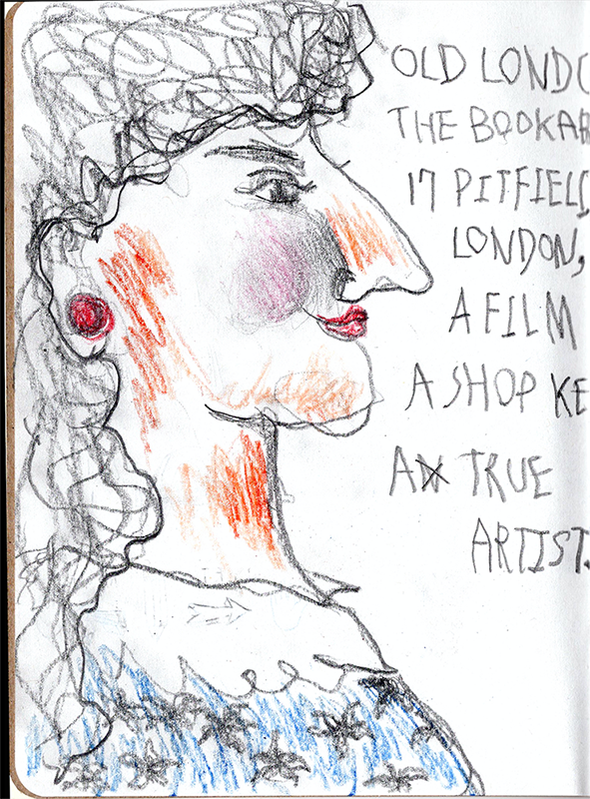 OLD LONDO
THE BOOKAR
17 PITFIELD
LONDON,
A FILM
A SHOP KE
A TRUE
ARTIST.